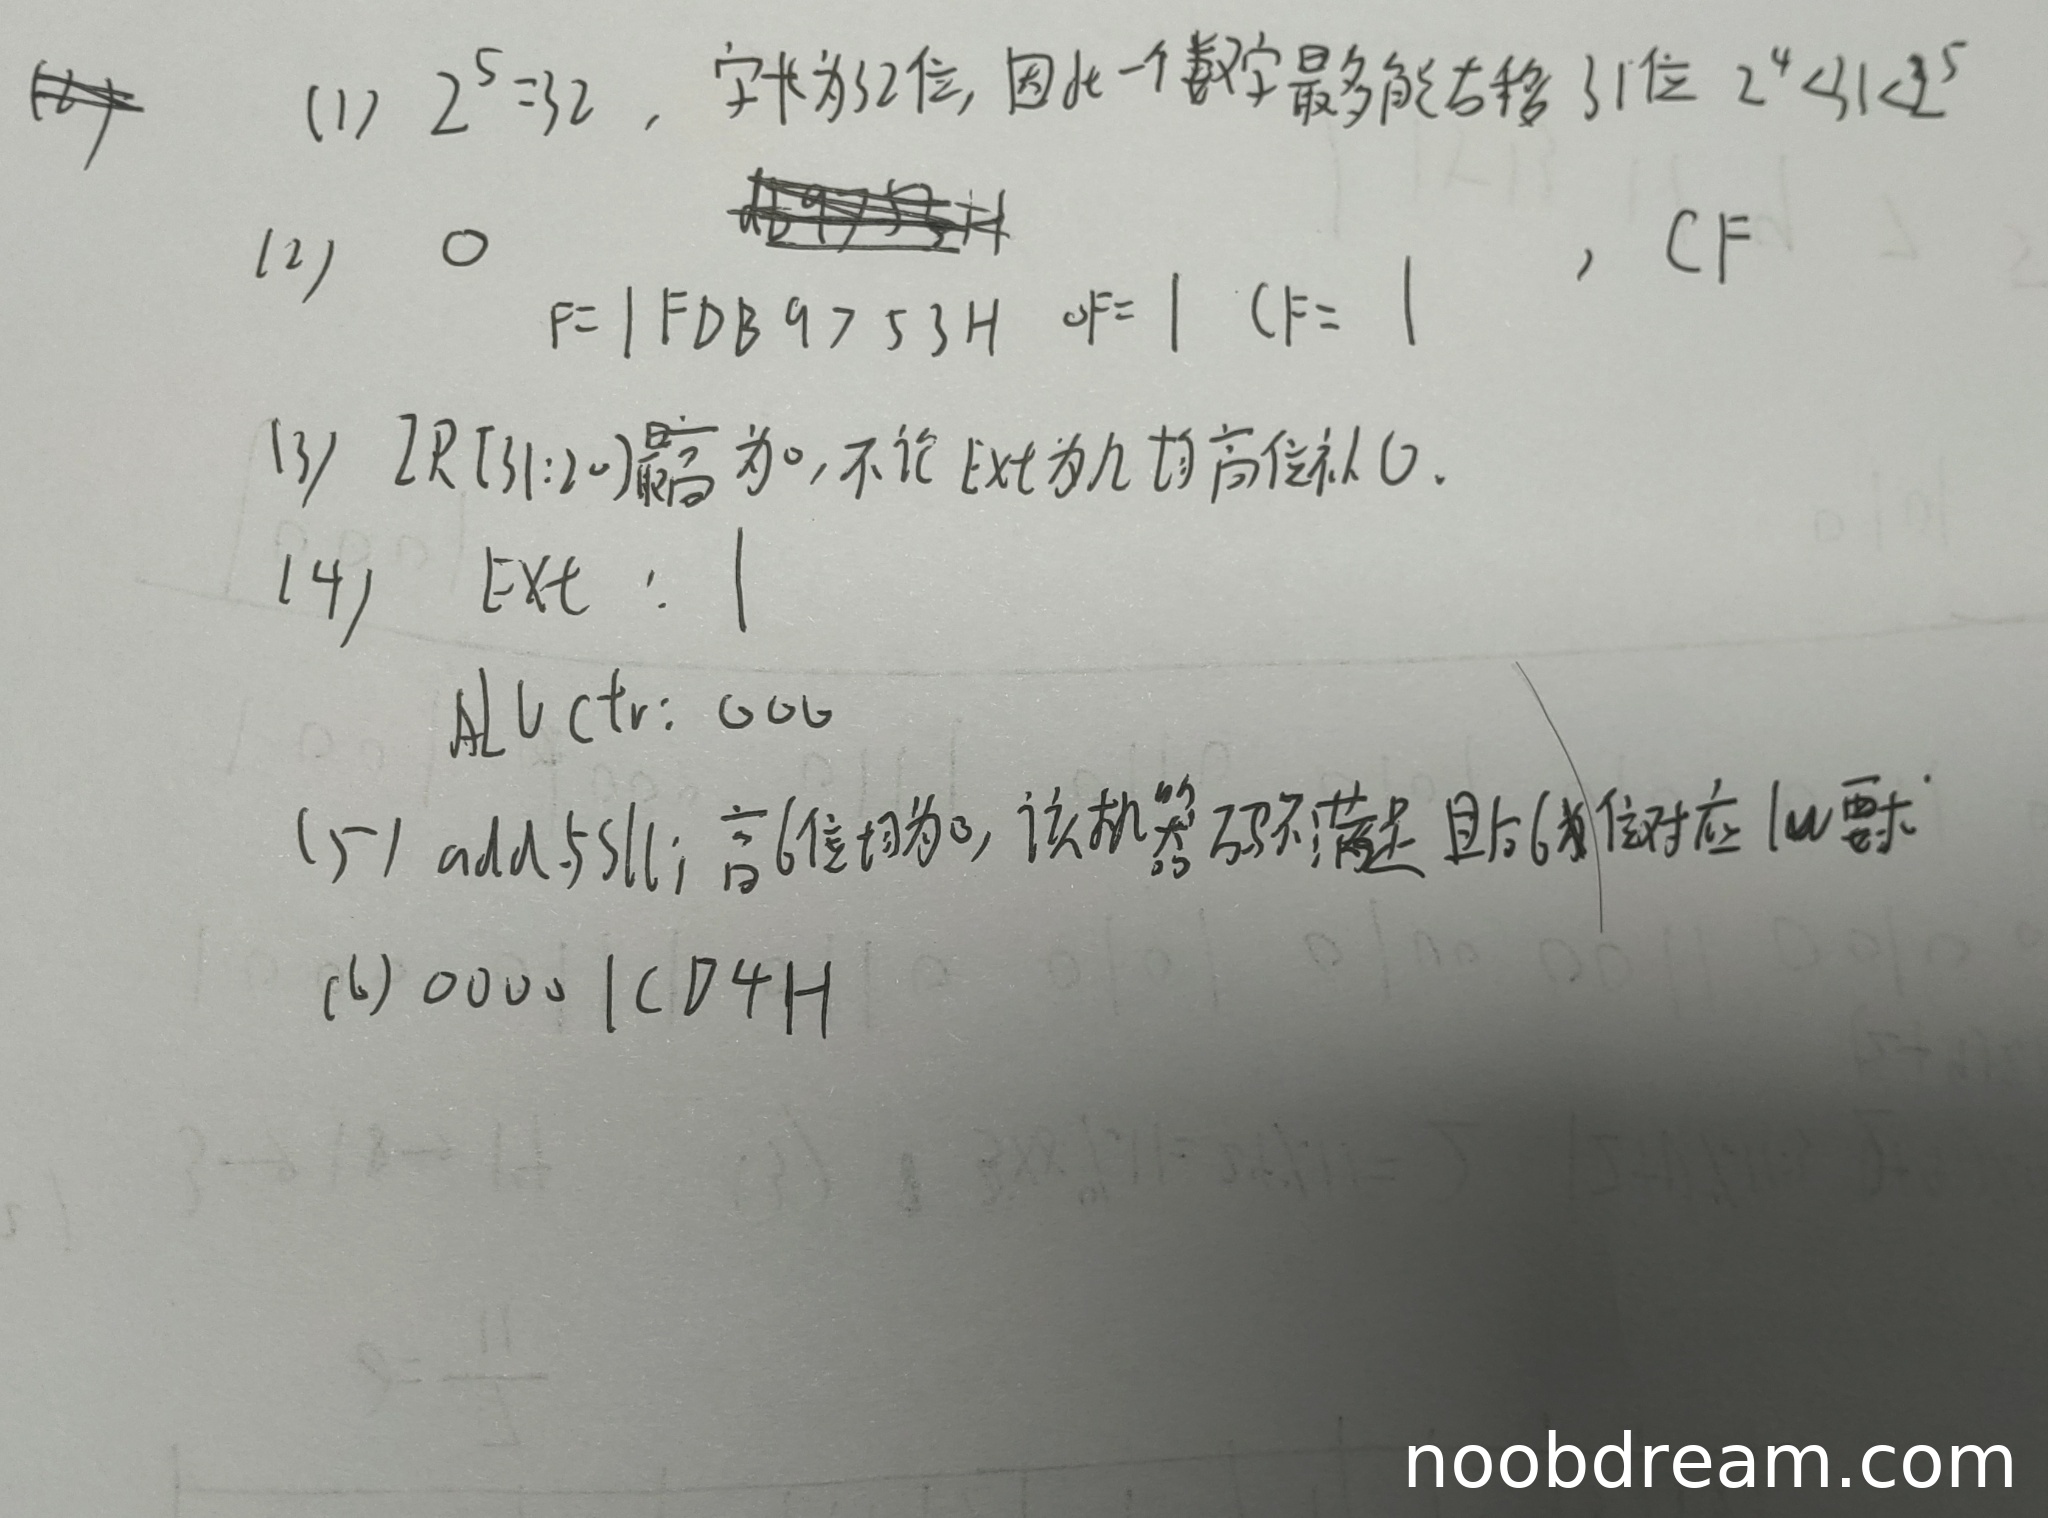 (1) 2^5=32, 字长为32位,因此一个数字最多能右移31位 2^4<31<2^5
(2) 0 , CF
F=1FDB9753H OF=1 CF=1
(3) IR[31:20]最高为0,不论Ext为几均高位补0.
(4) Ext: 1
ALUctr: 000
(5) add与slli高6位均为0,该机器码不满足 且后6位对应lw要求.
(6) 00001CD4H
noobdream.com